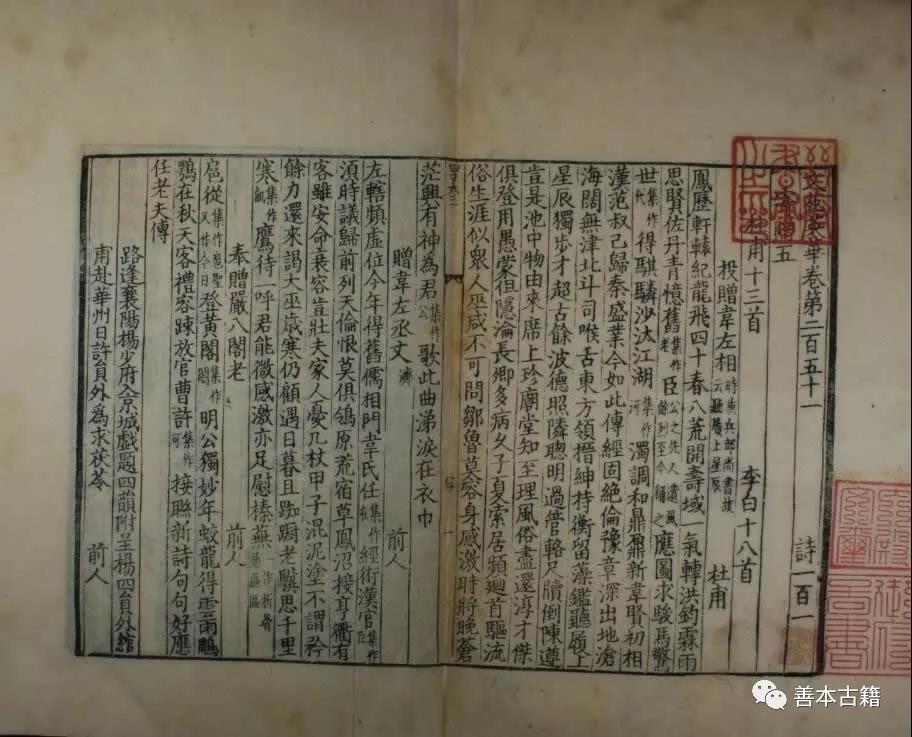 文苑英華卷第二百五十一 詩一百一
杜甫十三首 李白十八首
投贈韋左相 杜甫
鳳歷軒轅紀龍飛四十春八荒開壽域一氣轉洪鈞霖雨
思賢佐丹青憶舊集作老臣公之先人遺風餘烈至今應圖求駿馬驚
世集作代得騏驎沙汰江湖集作河濁調和鼎鼐新韋賢初相
漢范叔已歸秦盛業今如此傳經固絕倫豫章深出地滄
海闊無津北斗司喉舌東方領搢紳持衡留藻鑑聽履上
星辰獨步才超古餘波德照隣聰明過管輅尺牘倒陳遵
豈是池中物由來席上珍廟堂知至理風俗盡還淳才傑
俱登用愚蒙但隱淪長卿多病久子夏索居頻廻首驅流
俗生涯似眾人巫咸不可問鄒魯莫容身感激時將晚蒼
茫興有神為君集作公歌此曲涕淚在衣巾
贈韋左丞丈濟 前人
左轄頻虛位今年得舊儒相門韋氏在經術漢官集作臣
須時議歸前列天倫恨莫俱鴒原荒宿草鳳沼接亨衢有
客雖安命衰容豈壯夫家人憂几杖甲子混泥塗不謂矜
餘力還來謁大巫歲寒仍顧遇日暮且踟躕老驥思千里
飢鷹待一呼君能微感激亦足慰榛蕪
奉贈嚴八閣老 前人
扈從登黃閣明公獨妙年蛟龍得雲雨鵰
鶚在秋天客禮容疎放官曹許集作可接聯新詩句句好應
任老夫傳
路逢襄陽楊少府入京城戲題四韻附呈楊四員外綰
甫赴華州日許員外為求茯苓 前人
善本古籍